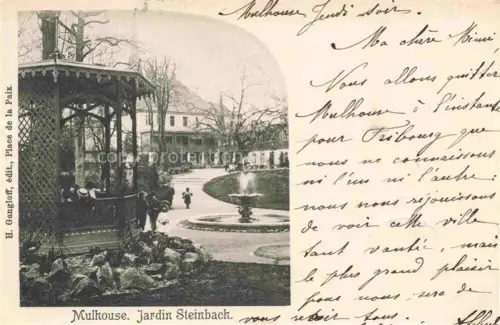 Mulhouse Jeudi soir.
Ma chère Mimi
Nous allons quitter
Mulhouse à l'instant
pour Fribourg que
nous ne connaissons
ni l'un ni l'autre;
nous nous réjouissons
de voir cette ville
tant vantée, mais
le plus grand plaisir
pour nous, sera de
vous revoir tous.
H. Gangloff, édit., Place de la Paix.
Mulhouse. Jardin Steinbach.